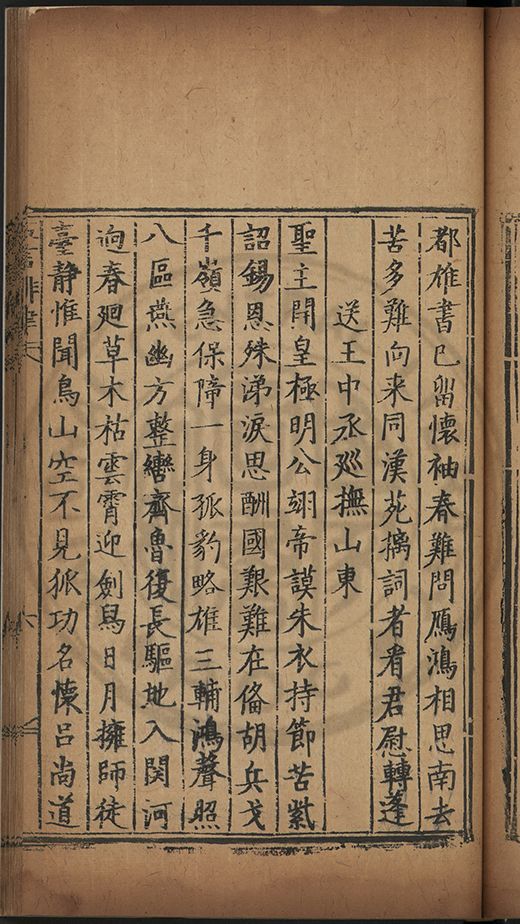 都雄書已留懷袖春難問鴈鴻相思南去
苦多難向来同漢苑摛詞者看君慰轉蓬
送王中丞廵撫山東
聖主開皇極明公翊帝謨朱衣持節苦紫
詔錫恩殊涕淚思酬國艱難在偹胡兵戈
千嶺急保障一身孤豹略雄三輔鴻聲照
八區燕幽方整轡齊魯復長驅地入関河
逈春廻草木枯雲霄迎劍舄日月擁師徒
臺静惟聞鳥山空不見狐功名懐吕尚道
六